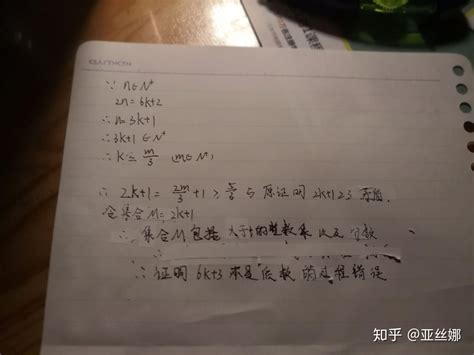 ∵ n∈N⁺
2n=6k+2
∴ n=3k+1
∴ 3k+1∈N⁺
∴ k= m/3 (m∈N⁺)
∴ 2k+1= 2m/3 +1 ≥ 5/3 与原证明2k+1≥3矛盾
令集合M=2k+1
∴ 集合M包括大于1的整数 以及分数
∴ 证明6k+3不是质数的过程错误
知乎 @亚丝娜